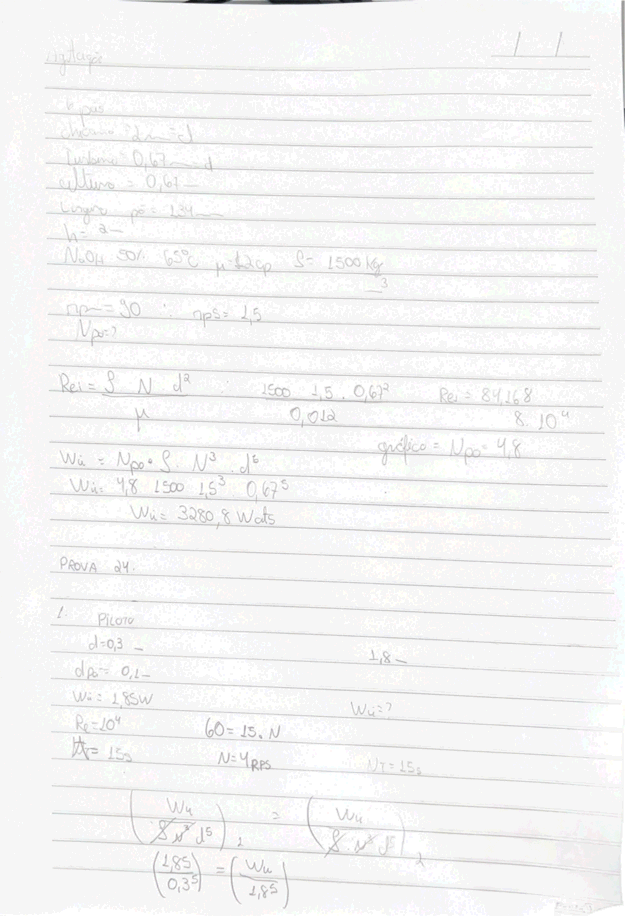 Agitação
6 pás
chicana 2m = d
Turbina = 0,67 m d
altura = 0,67
largura pá = 134 mm
h = 2
NaOH 50% 65°C μ = 12cp ρ = 1500 kg/m³
rpm = 90 ∴ rps = 1,5
Npo = ?
Rei = ρ N d² / μ : 1500 . 1,5 . 0,67² / 0,012 Rei = 84,168
8.10⁴
Wu = Npo . ρ . N³ . d⁵ gráfico = Npo = 4,8
Wu = 4,8 1500 1,5³ 0,67⁵
Wu = 3280,8 Wats
PROVA 24.
1. Piloto
d = 0,3 1,8
dpá = 0,1
Wu = 1,85W Wu = ?
Re = 10⁴ 60 = 15.N
= 15s N = 4 RPS NT = 15s
(Wu / ρ N³ d⁵)₁ = (Wu / ρ N³ d⁵)₂
(1,85 / 0,3⁵) = (Wu / 1,8⁵)